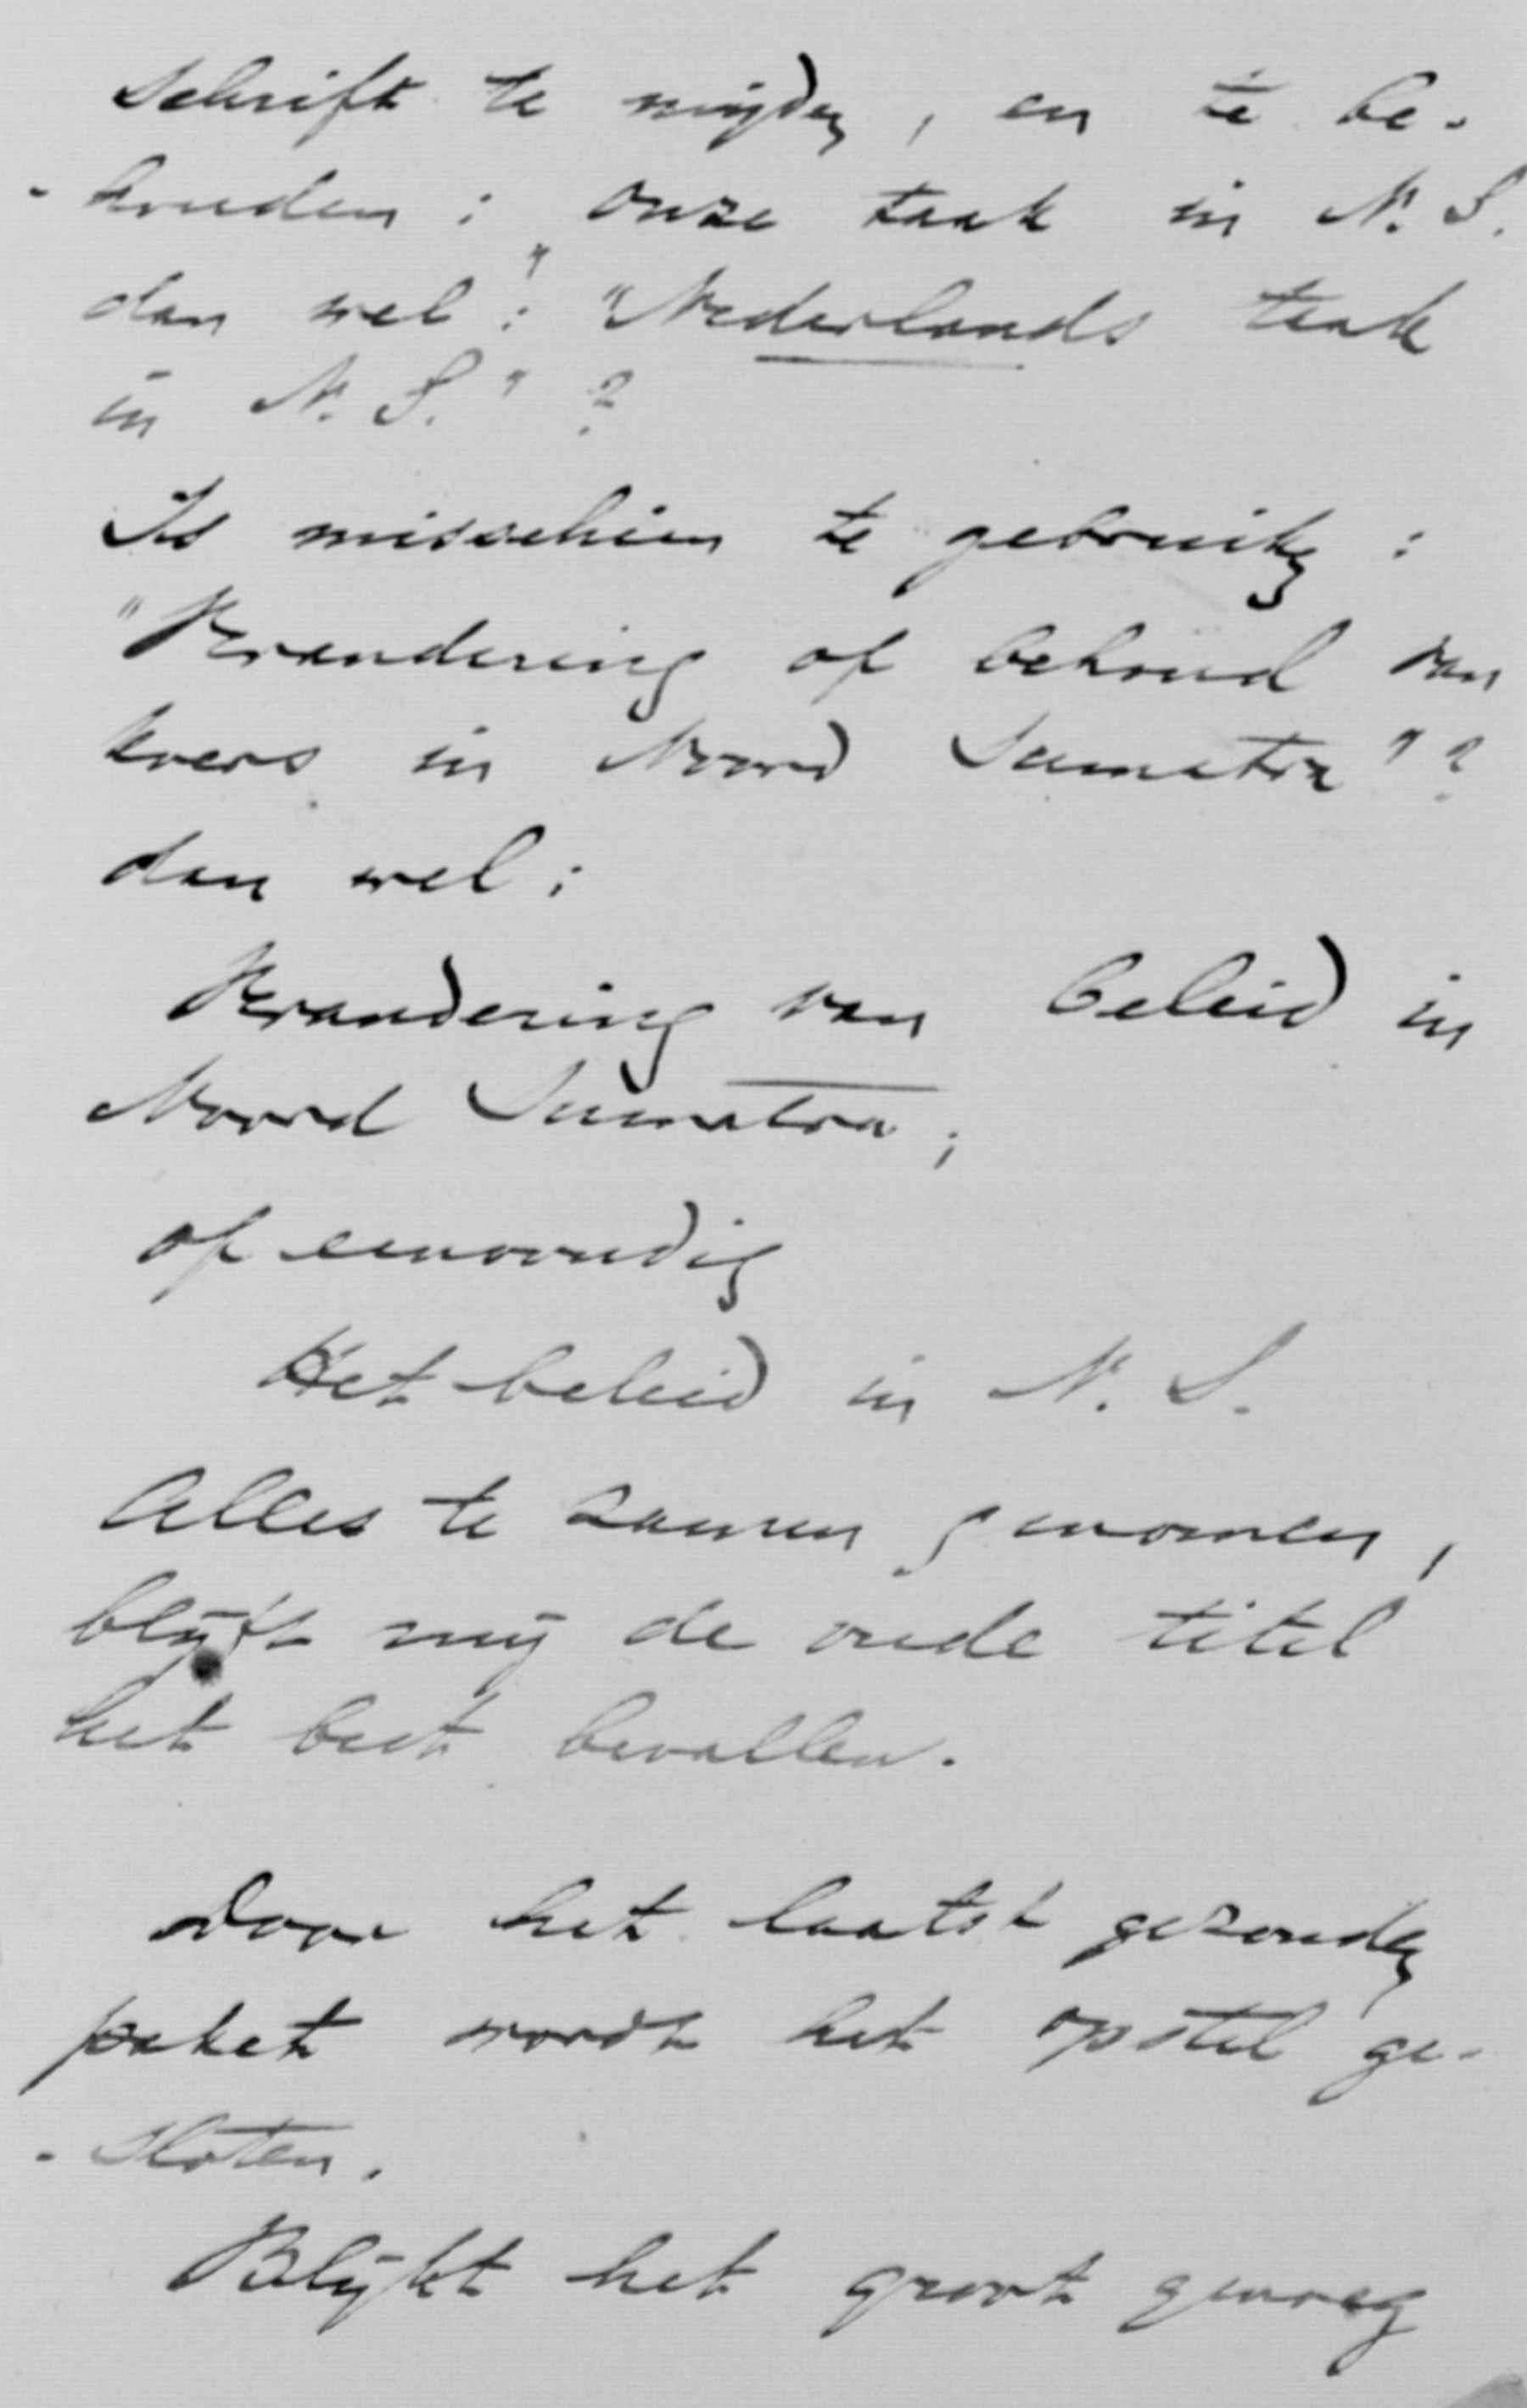 schrift te mijden, en te be-
-houden: onze taak in N. S."
dan wel: "Nederlands taak
in N. S." ?
Is misschien te gebruiken:
"Verandering of behoud van
koers in Noord Sumatra"?
dan wel:
Verandering van beleid in
Noord Sumatra;
of eenvoudig
Het beleid in N. S.
Alles te zamen genomen,
blijft mij de oude titel
het best bevallen.
Door het laatst gezonden
paket wordt het opstel ge-
-sloten.
Blijkt het groot genoeg